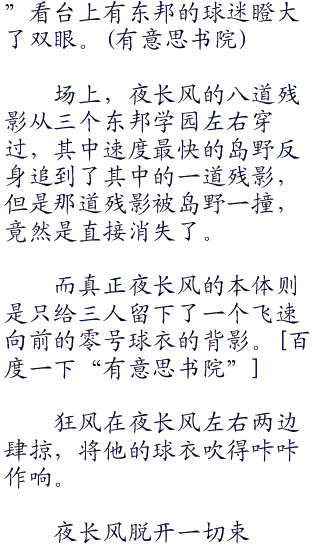 ”看台上有东邦的球迷瞪大
了双眼。(有意思书院)
场上，夜长风的八道残
影从三个东邦学园左右穿
过，其中速度最快的岛野反
身追到了其中的一道残影，
但是那道残影被岛野一撞，
竟然是直接消失了。
而真正夜长风的本体则
是只给三人留下了一个飞速
向前的零号球衣的背影。[百
度一下“有意思书院”]
狂风在夜长风左右两边
肆掠，将他的球衣吹得咔咔
作响。
夜长风脱开一切束